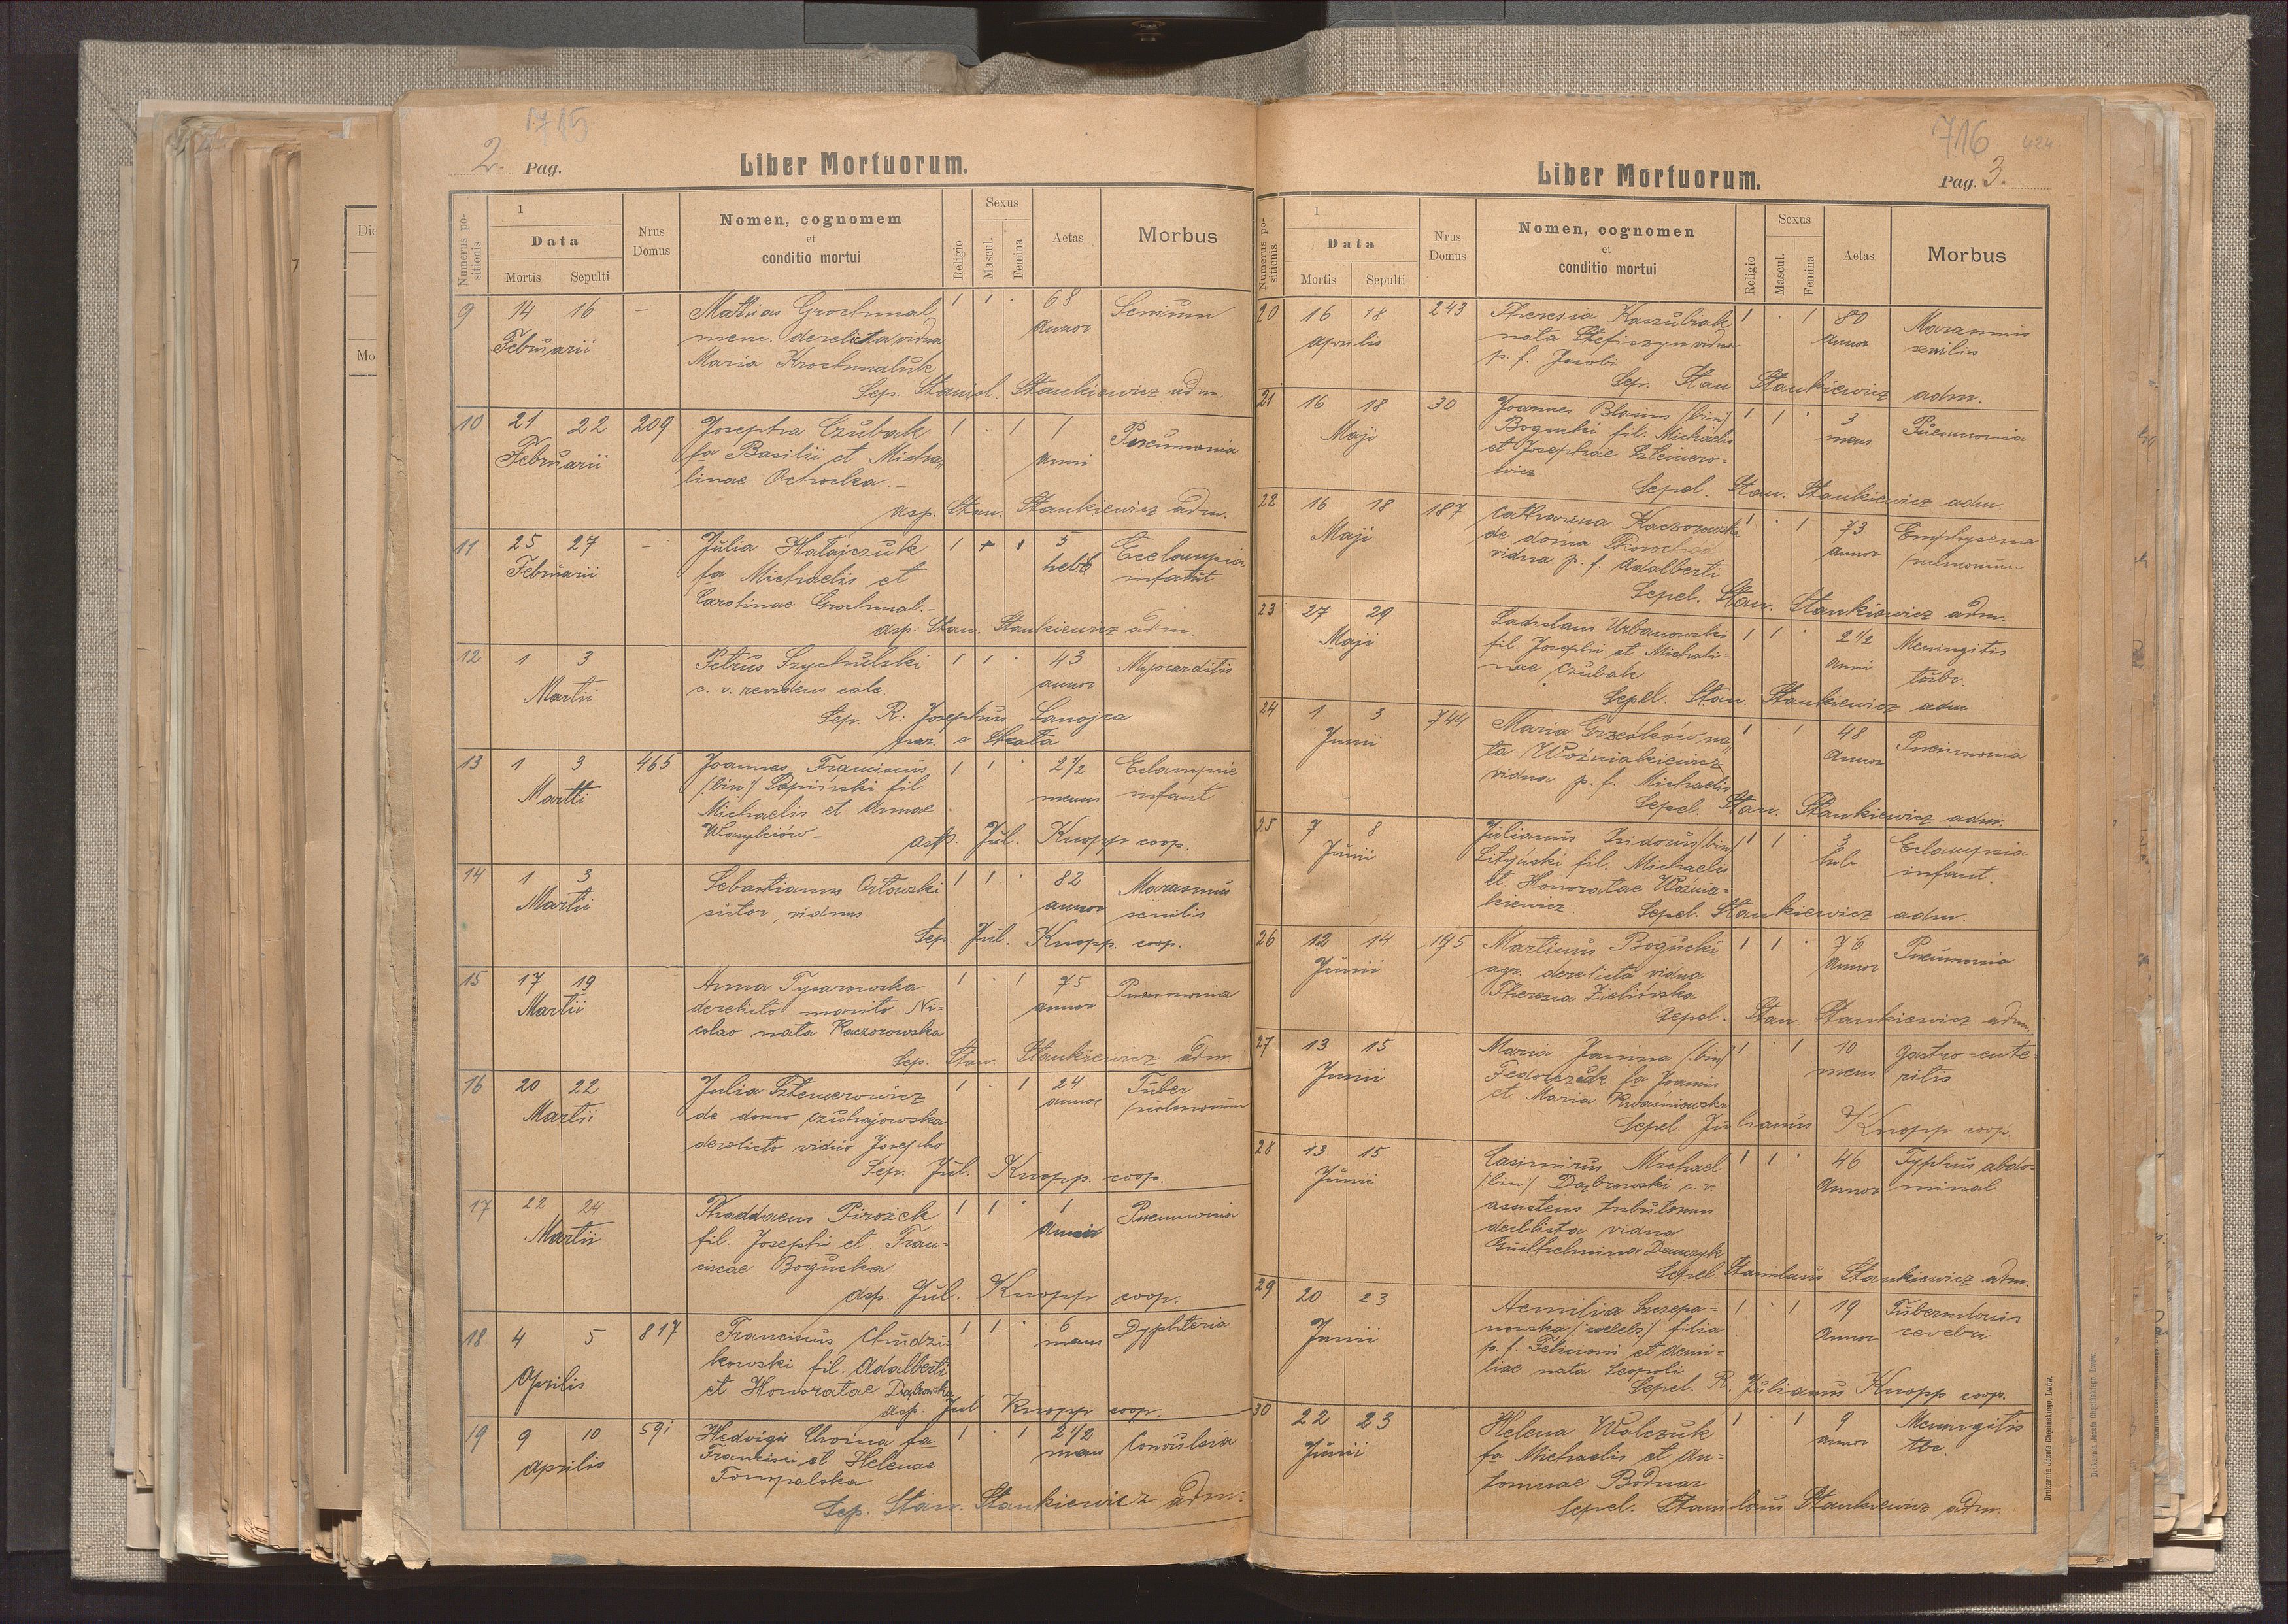 715
2. Pag.
Liber Mortuorum.
Numerus positionis
1
Data
Mortis Sepulti
Nrus Domus
Nomen, cognomem
et
conditio mortui
Religio
Sexus
Mascul. Femina
Aetas
Morbus
9 14 16 — Mathias Grochmal 1 1 · 68 Senium
Februarii menc. derelicta vidua annor
Maria Krochmaluk
Sep. Stanisl. Stankiewicz adm.
10 21 22 209 Josepha Czubak 1 · 1 1 Pneumonia
Februarii fa Basilii et Micha„ anni
linae Ochocka.-
asp. Stan. Stankiewicz adm.
11 25 27 — Julia Hałajczuk 1 1 5 Ecclampsia
Februarii fa Michaelis et hebd infant
Carolinae Grochmal.-
asp. Stan. Stankiewicz adm.
12 1 3 Petrus Szychulski 1 1 · 43 Myocarditis
Martii c. v. revidens calc. annor
Sep. R: Josephus Sanojca
par. e Skałta
13 1 3 465 Joannes Franciscus 1 1 · 2 1/2 Eclampsie
Martii /:bin:/ Papiński fil mensis infant
Michaelis et Annae
Wasylciów-
asp. Jul. Knopp coop.
14 1 3 Sebastianus Orłowski 1 1 · 82 Marasmus
Martii sutor, viduus annor senilis
Sep. Jul. Knopp. coop.
15 17 19 Anna Tysarowska 1 · 1 75 Pneumonia
Martii derelicto marito Ni= annor
colao nata Kaczorowska
Sep. Stan. Stankiewicz adm.
16 20 22 Julia Sztemerowicz 1 · 1 24 Tuber
Martii de domo Czuhajowska annor pulmonum
derelicto viduo Josepho
Sep. Jul. Knopp. coop.
17 22 24 Thaddaeus Pirożek 1 1 · 1 Pneumonia
Martii fil. Josephi et Fran-
ciscae Bogucka
asp. Jul. Knopp coop.
18 4 5 817 Franciscus Chudzi- 1 1 · 6 Dyphteria
Aprilis kowski fil. Adalberti mens
et Honoratae Dąbrowska
asp. Jul Knopp coop.
19 9 10 591 Hedvigis Choina fa 1 · 1 2 1/2 Convulsia
Aprilis Francisci et Helenae mens
Tompalska
Sep. Stan. Stankiewicz adm.
716 424
Liber Mortuorum.
Pag. 3.
Numerus positionis
1
Data
Mortis Sepulti
Nrus Domus
Nomen, cognomen
et
conditio mortui
Religio
Sexus
Mascul. Femina
Aetas
Morbus
20 16 18 243 Theresia Kaszubiak 1 · 1 80 Marasmus
Aprilis nata Stefiszyn vidua annor senilis
p. f. Jacobi
Sep. Stan Stankiewicz adm.
21 16 18 30 Joannes Blasius /bin/ 1 1 · 3 Pneumonia
Maji Bogucki fil. Michaelis mens
et Josephae Sztemero=
wicz
Sepel. Stan. Stankiewicz adm.
22 16 18 187 Catharina Kaczorowska 1 · 1 73 Emphysema
Maji de domo annor pulmonum
vidua p. f. Adalberti
Sepel. Stan. Stankiewicz adm.
23 27 29 Ladislaus Urbanowski 1 1 · 2 1/2 Meningitis
Maji fil. Josephi et Michali= anni tubc
nae Czubak
Sepel. Stan. Stankiewicz adm
24 1 3 744 Maria Grześków na„ 1 · 1 48 Pneumonia
Junii ta Woźniakiewicz annor
vidua p. f. Michaelis
Sepel. Stan. Stankiewicz adm.
25 7 8 Julianus Isidorus /bin/ 1 1 3 Eclampsia
Junii Lityński fil. Michaelis heb infant.
et Honoratae Woźnia=
kiewicz.
Sepel. Stankiewicz adm.
26 12 14 175 Martinus Bogucki 1 1 · 76 Pneumonia
Junii agr. derelicta vidua annor
Theresia Zielińska
Sepel. Stan. Stankiewicz adm.
27 13 15 Maria Janina /:bin/ 1 · 1 10 gastro=ente-
Junii Fedorczak fa Joannis mens ritis
et Maria Kwaśniowska
Sepel. Julianus Knopp coop.
28 13 15 - Casimirus Michael 1 1 · 46 Typhus abdo=
Junii /:bin/ Dąbrowski c. v. annor minal
assistens tributorum
derelicta vidua
Guilhelmina Demczyk
Sepel. Stanislaus Stankiewicz adm.
29 20 23 Aemilia Szczepa= 1 · 1 19 Tuberculosis
Junii nowska /:coelebs/ filia annor cerebri
p. f. Feliciani et Aemi=
liae nata Leopoli
Sepel. R. Julianus Knopp coop.
30 22 23 Helena Walczuk 1 · 1 9 Meningitis
Junii fa Michaelis et An= annor tbc.
toninae Bodnar
Sepel. Stanislaus Stankiewicz adm.
Drukarnia Józefa Chęcińskiego, Lwów.
Drukarnia Józefa Chęcińskiego, Lwów.
Die
Mo